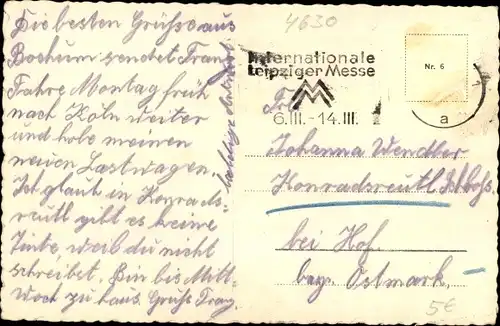 Die besten Grüsse aus
Bochum sendet Franz
Fahre Montag früh
nach Köln weiter
und hole meinen
neuen Lastwagen.
Ich glaub in Konrads-
reutl gibt es keine
Tinte weil du nicht
schreibst. Bin bis Mitt-
woch zu haus. Grüße Franz
4630
Internationale
Leipziger Messe
MM
6.III.-14.III.
Nr. 6
a
Johanna Wendler
Konradsreutl
bei Hof
bayr. Ostmark
5€